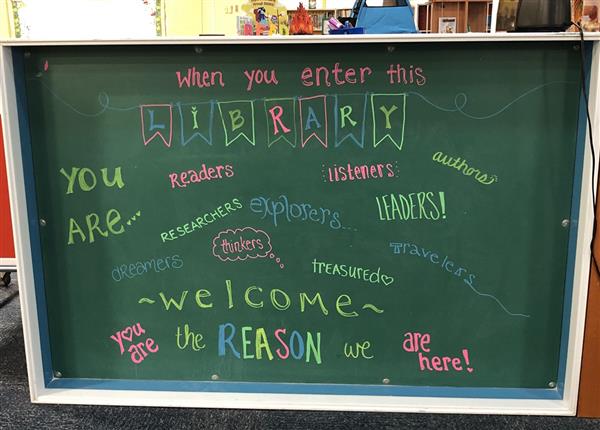 When you enter this
LiBRARY
YOU ARE...
Readers
Listeners
authors
RESEARCHERS
explorers...
LEADERS!
thinkers
dreamers
TREASURED♡
Travelers
~welcome~
you are the REASON we are here!